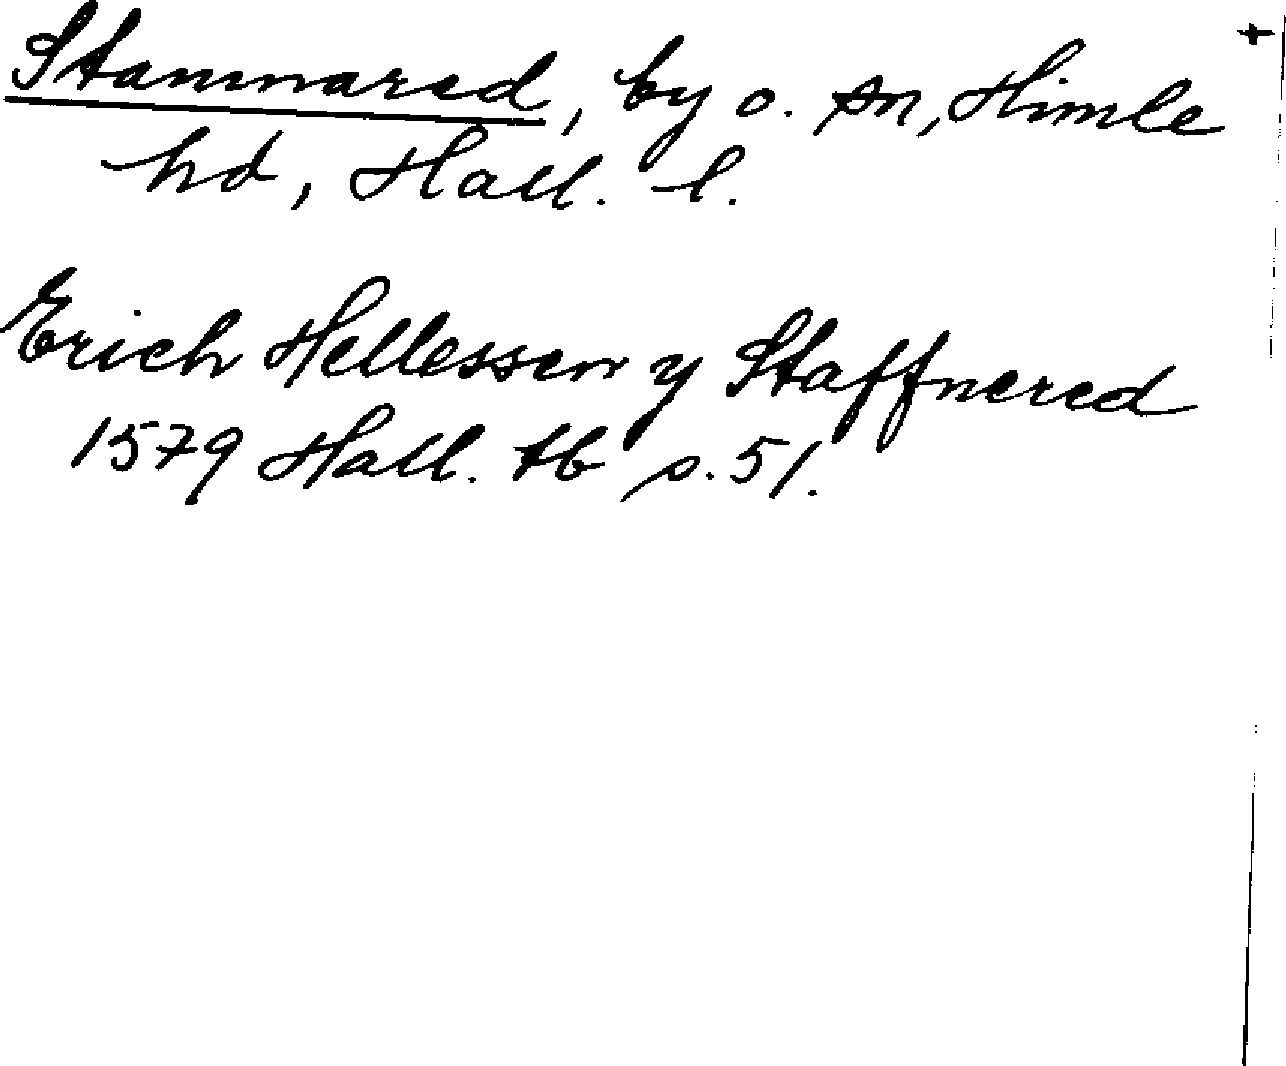 Stamnared, by o. sn, Himle +
hd, Hall. l.
Erich Hellessen y Staffnered
1579 Hall. tb s. 51.